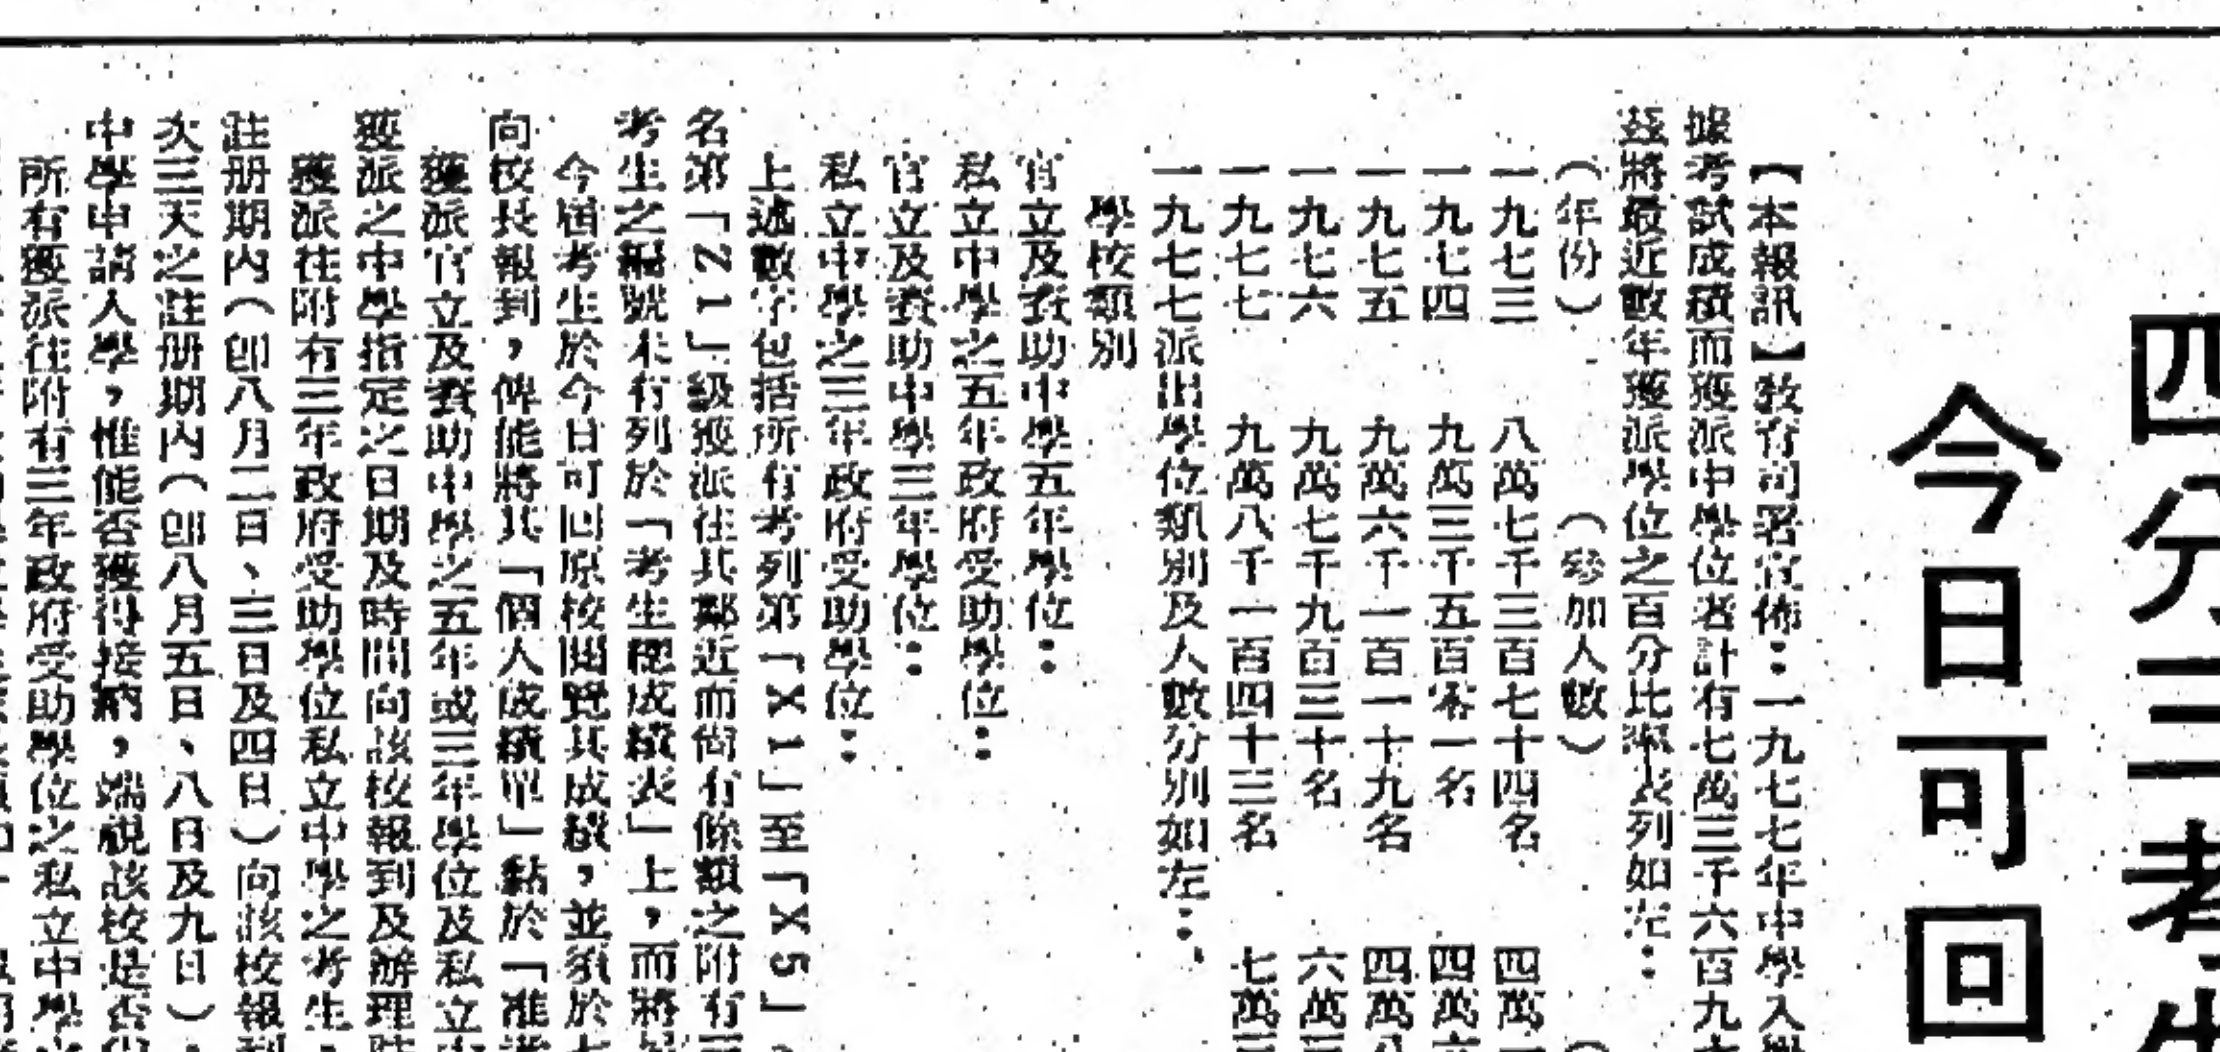 四分三考生
今日可回
【本報訊】教育司署宣佈：一九七七年中學入學
據考試成績而獲派中學位者計有七萬三千六百九
茲將最近數年獲派學位之百分比率表列如左：
（年份）　（參加人數）　（
一九七三　八萬七千三百七十四名　四萬一
一九七四　九萬三千五百零一名　四萬六
一九七五　九萬六千一百一十九名　四萬八
一九七六　九萬七千九百三十名　六萬三
一九七七　九萬八千一百四十三名　七萬三
一九七七派出學位類別及人數分別如左：
學校類別
官立及資助中學五年學位：
私立中學之五年政府受助學位：
官立及資助中學三年學位：
私立中學之三年政府受助學位：
上述數字包括所有考列第「X1」至「X5」
名第「Z1」級獲派往其鄰近而尚有餘額之附有三
考生之編號未有列於「考生總成績表」上，而將
今屆考生於今日可回原校閱覽其成績，並須於七
向校長報到，俾能將其「個人成績單」黏於「准考
獲派官立及資助中學之五年或三年學位及私立中
獲派之中學指定之日期及時間向該校報到及辦理
獲派往附有三年政府受助學位私立中學之考生，
註册期內（卽八月二日、三日及四日）向該校報到
次三天之註册期內（卽八月五日、八日及九日），
中學申請入學，惟能否獲得接納，端視該校是否
所有獲派往附有三年政府受助學位之私立中學